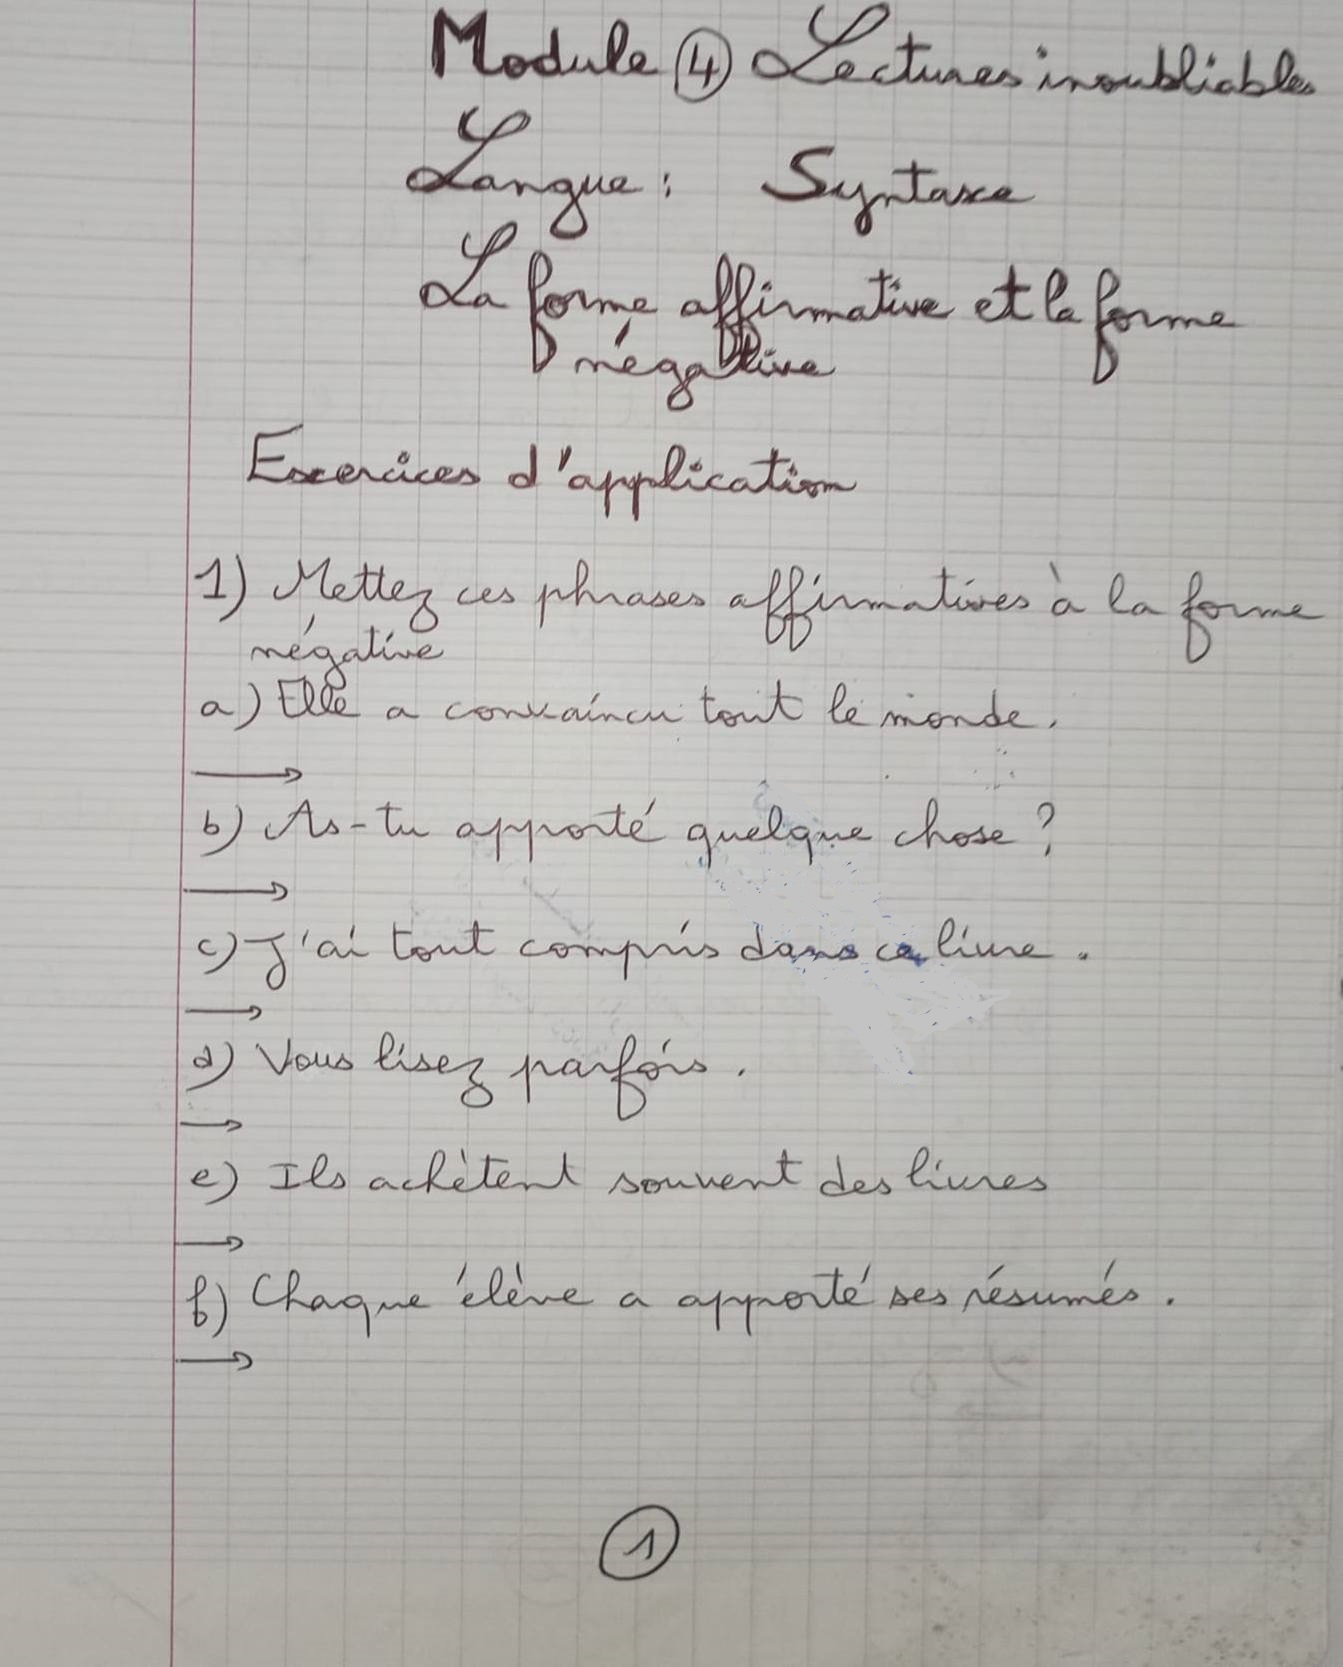 Module ④ Lectures inoubliables
Langue : Syntaxe
La forme affirmative et la forme
négative
Exercices d'application
1) Mettez ces phrases affirmatives à la forme
négative
a) Elle a convaincu tout le monde.
→
b) As-tu apporté quelque chose ?
→
c) J'ai tout compris dans ce livre.
→
d) Vous lisez parfois.
→
e) Ils achètent souvent des livres
→
f) Chaque élève a apporté ses résumés.
→
①